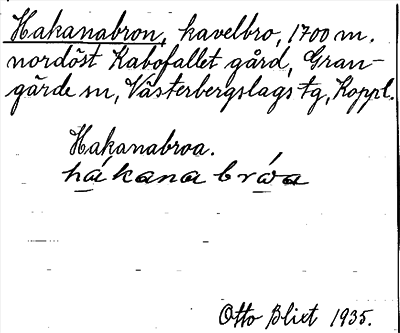 Hakanabron, kavelbro, 1700 m.
nordöst Kabofallet gård, Gran-
gärde sn, Västerbergslags tg, Koppl.
Hakanabroa.
hákana bróa
Otto Blixt 1935.